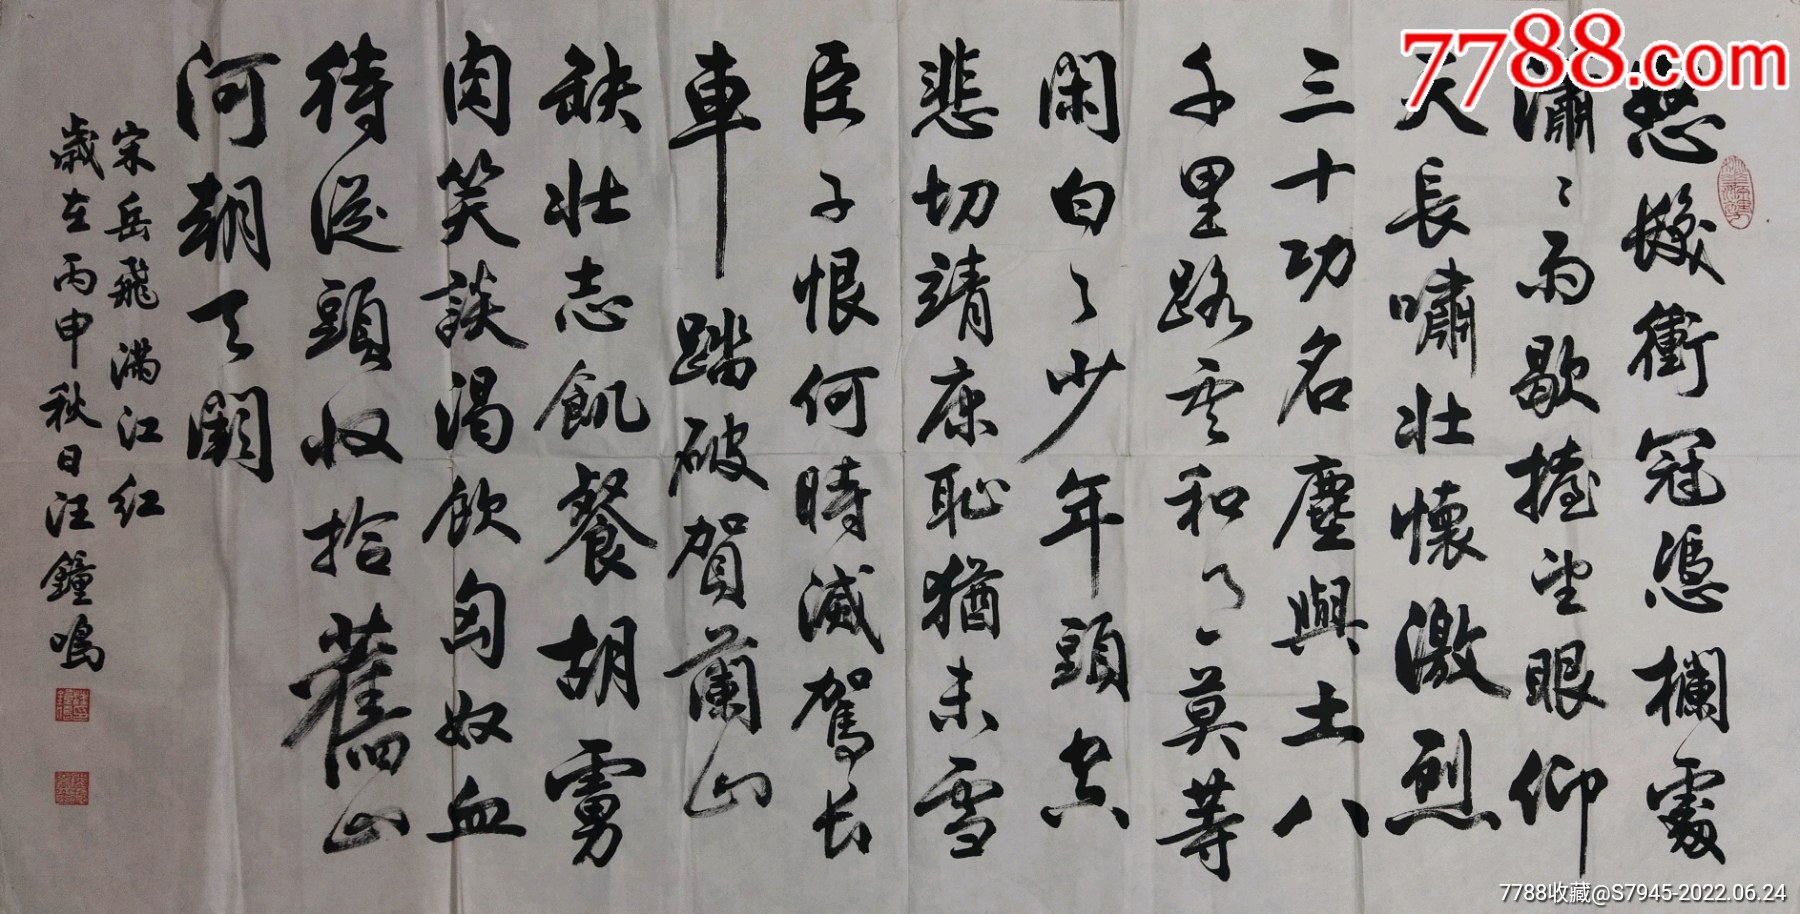 怒髮衝冠憑欄處
瀟々雨歇擡望眼仰
天長嘯壯懷激烈
三十功名塵與土八
千里路雲和月莫等
閑白了少年頭空
悲切靖康恥猶未雪
臣子恨何時滅駕長
車踏破賀蘭山
缺壯志飢餐胡虜
肉笑談渴飲匈奴血
待從頭收拾舊山
河朝天闕
宋岳飛滿江紅
歲在丙申秋日汪鐘鳴
7788.com
7788收藏@S7945-2022.06.24